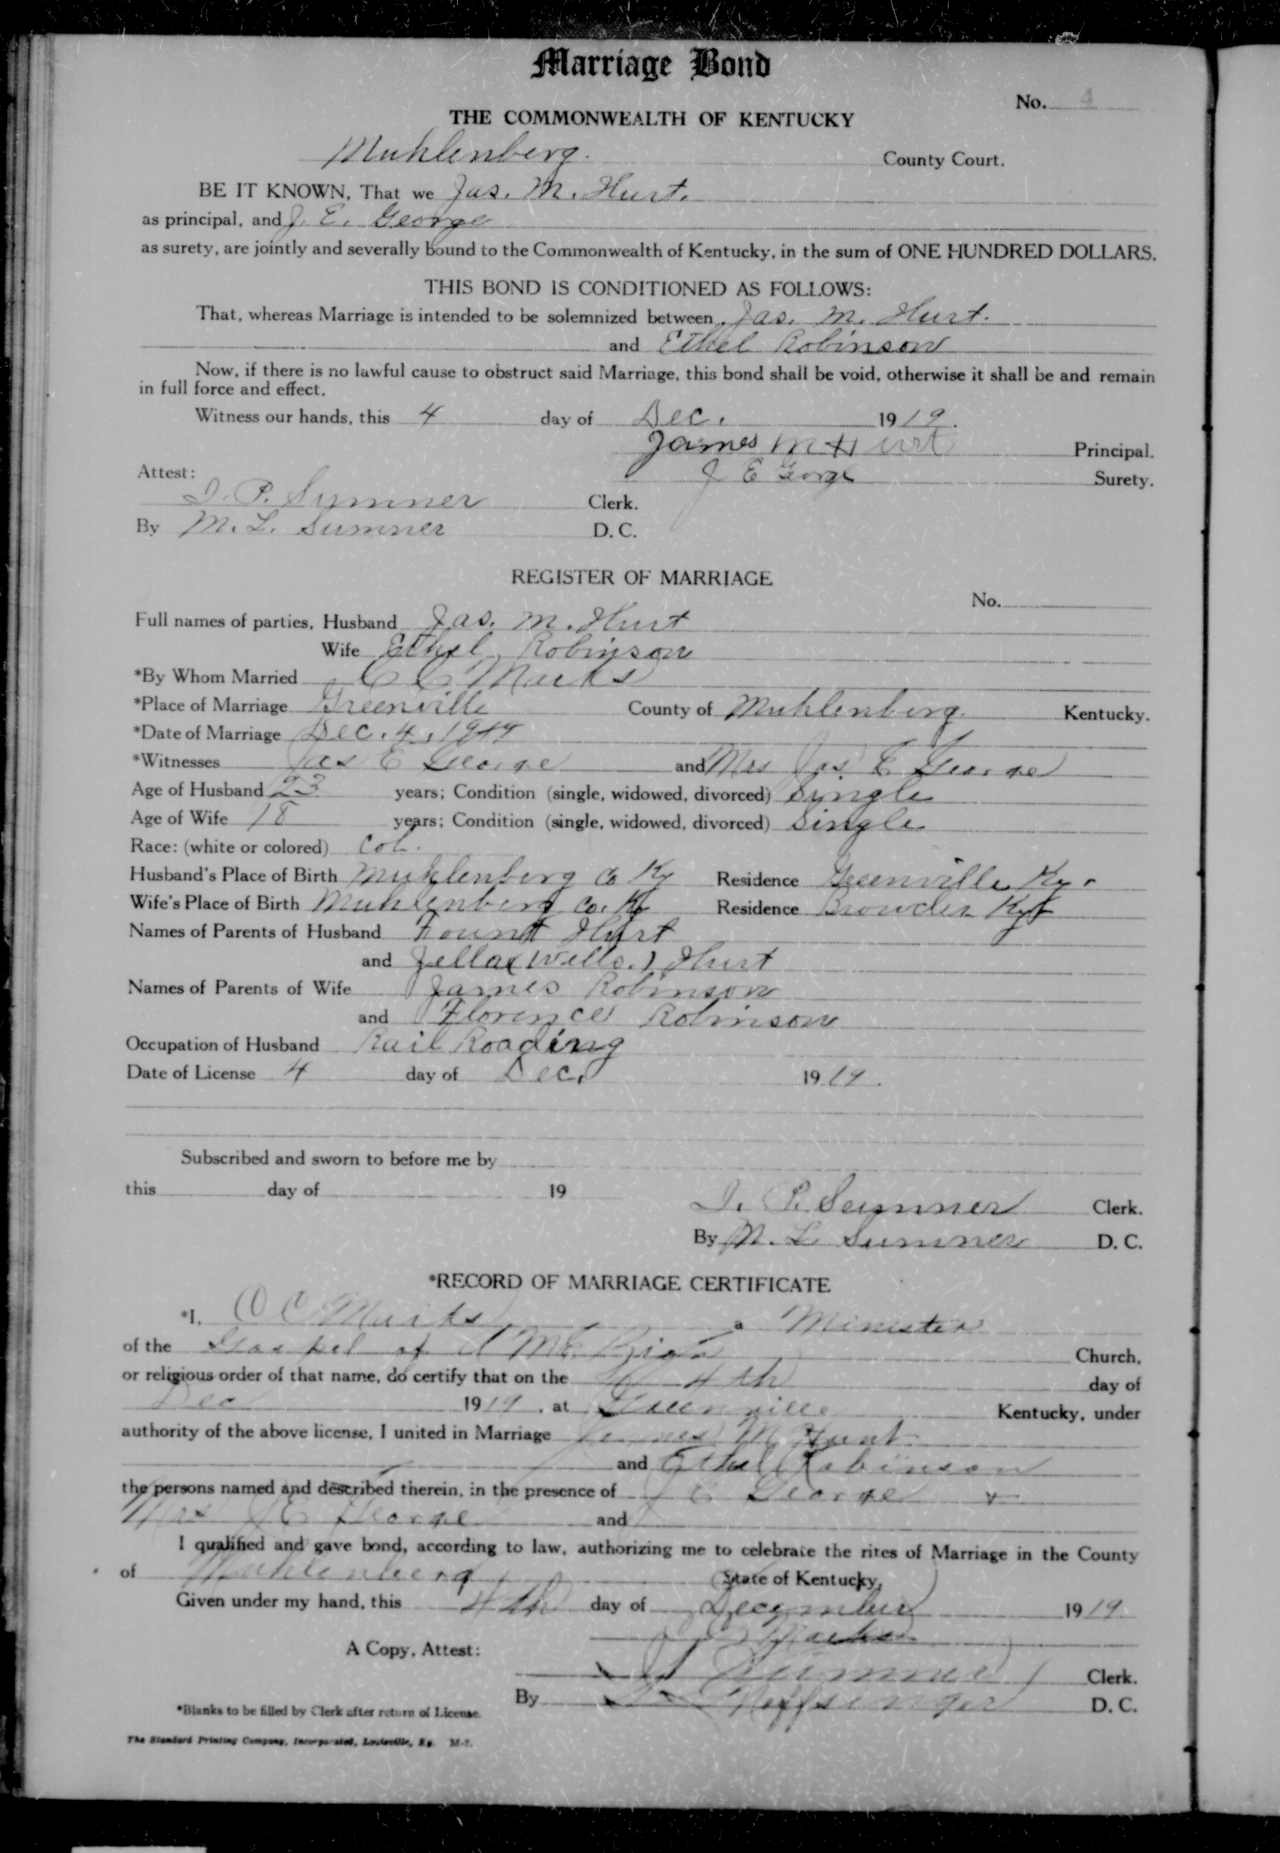 Marriage Bond
No. 4
THE COMMONWEALTH OF KENTUCKY
Muhlenberg. County Court.
BE IT KNOWN, That we Jas. M. Hurt.
as principal, and J. E. George
as surety, are jointly and severally bound to the Commonwealth of Kentucky, in the sum of ONE HUNDRED DOLLARS.
THIS BOND IS CONDITIONED AS FOLLOWS:
That, whereas Marriage is intended to be solemnized between Jas. M. Hurt.
and Ethel Robinson
Now, if there is no lawful cause to obstruct said Marriage, this bond shall be void, otherwise it shall be and remain
in full force and effect.
Witness our hands, this 4 day of Dec. 1919.
James M Hurt Principal.
Attest: J E George Surety.
I. P. Sumner Clerk.
By M. L. Sumner D. C.
REGISTER OF MARRIAGE
No.
Full names of parties, Husband Jas. M. Hurt
Wife Ethel Robinson
*By Whom Married C C Marks
*Place of Marriage Greenville County of Muhlenberg. Kentucky.
*Date of Marriage Dec. 4, 1919
*Witnesses Jas E George and Mrs Jas. E George
Age of Husband 23 years; Condition (single, widowed, divorced) Single
Age of Wife 18 years; Condition (single, widowed, divorced) Single
Race: (white or colored) Col.
Husband's Place of Birth Muhlenberg Co Ky Residence Greenville Ky.
Wife's Place of Birth Muhlenberg Co. Ky Residence Browder Ky
Names of Parents of Husband Fount Hurt
and (Wells.) Hurt
Names of Parents of Wife James Robinson
and Florence Robinson
Occupation of Husband Rail Roading
Date of License 4 day of Dec. 1919.
Subscribed and sworn to before me by
this day of 19
I. P. Sumner Clerk.
By M. L. Sumner D. C.
*RECORD OF MARRIAGE CERTIFICATE
*I, C C Marks a Minister
of the Gospel of A M E Zion Church,
or religious order of that name, do certify that on the 4th day of
Dec 1919, at Greenville Kentucky, under
authority of the above license, I united in Marriage James M Hunt
and Ethel Robinson
the persons named and described therein, in the presence of J E George +
Mrs J E George and
I qualified and gave bond, according to law, authorizing me to celebrate the rites of Marriage in the County
of Muhlenberg State of Kentucky,
Given under my hand, this 4th day of December 1919
Marks
A Copy, Attest:
Sumner Clerk.
By Noffsinger D. C.
*Blanks to be filled by Clerk after return of License.
The Standard Printing Company, Incorporated, Louisville, Ky. M-7.